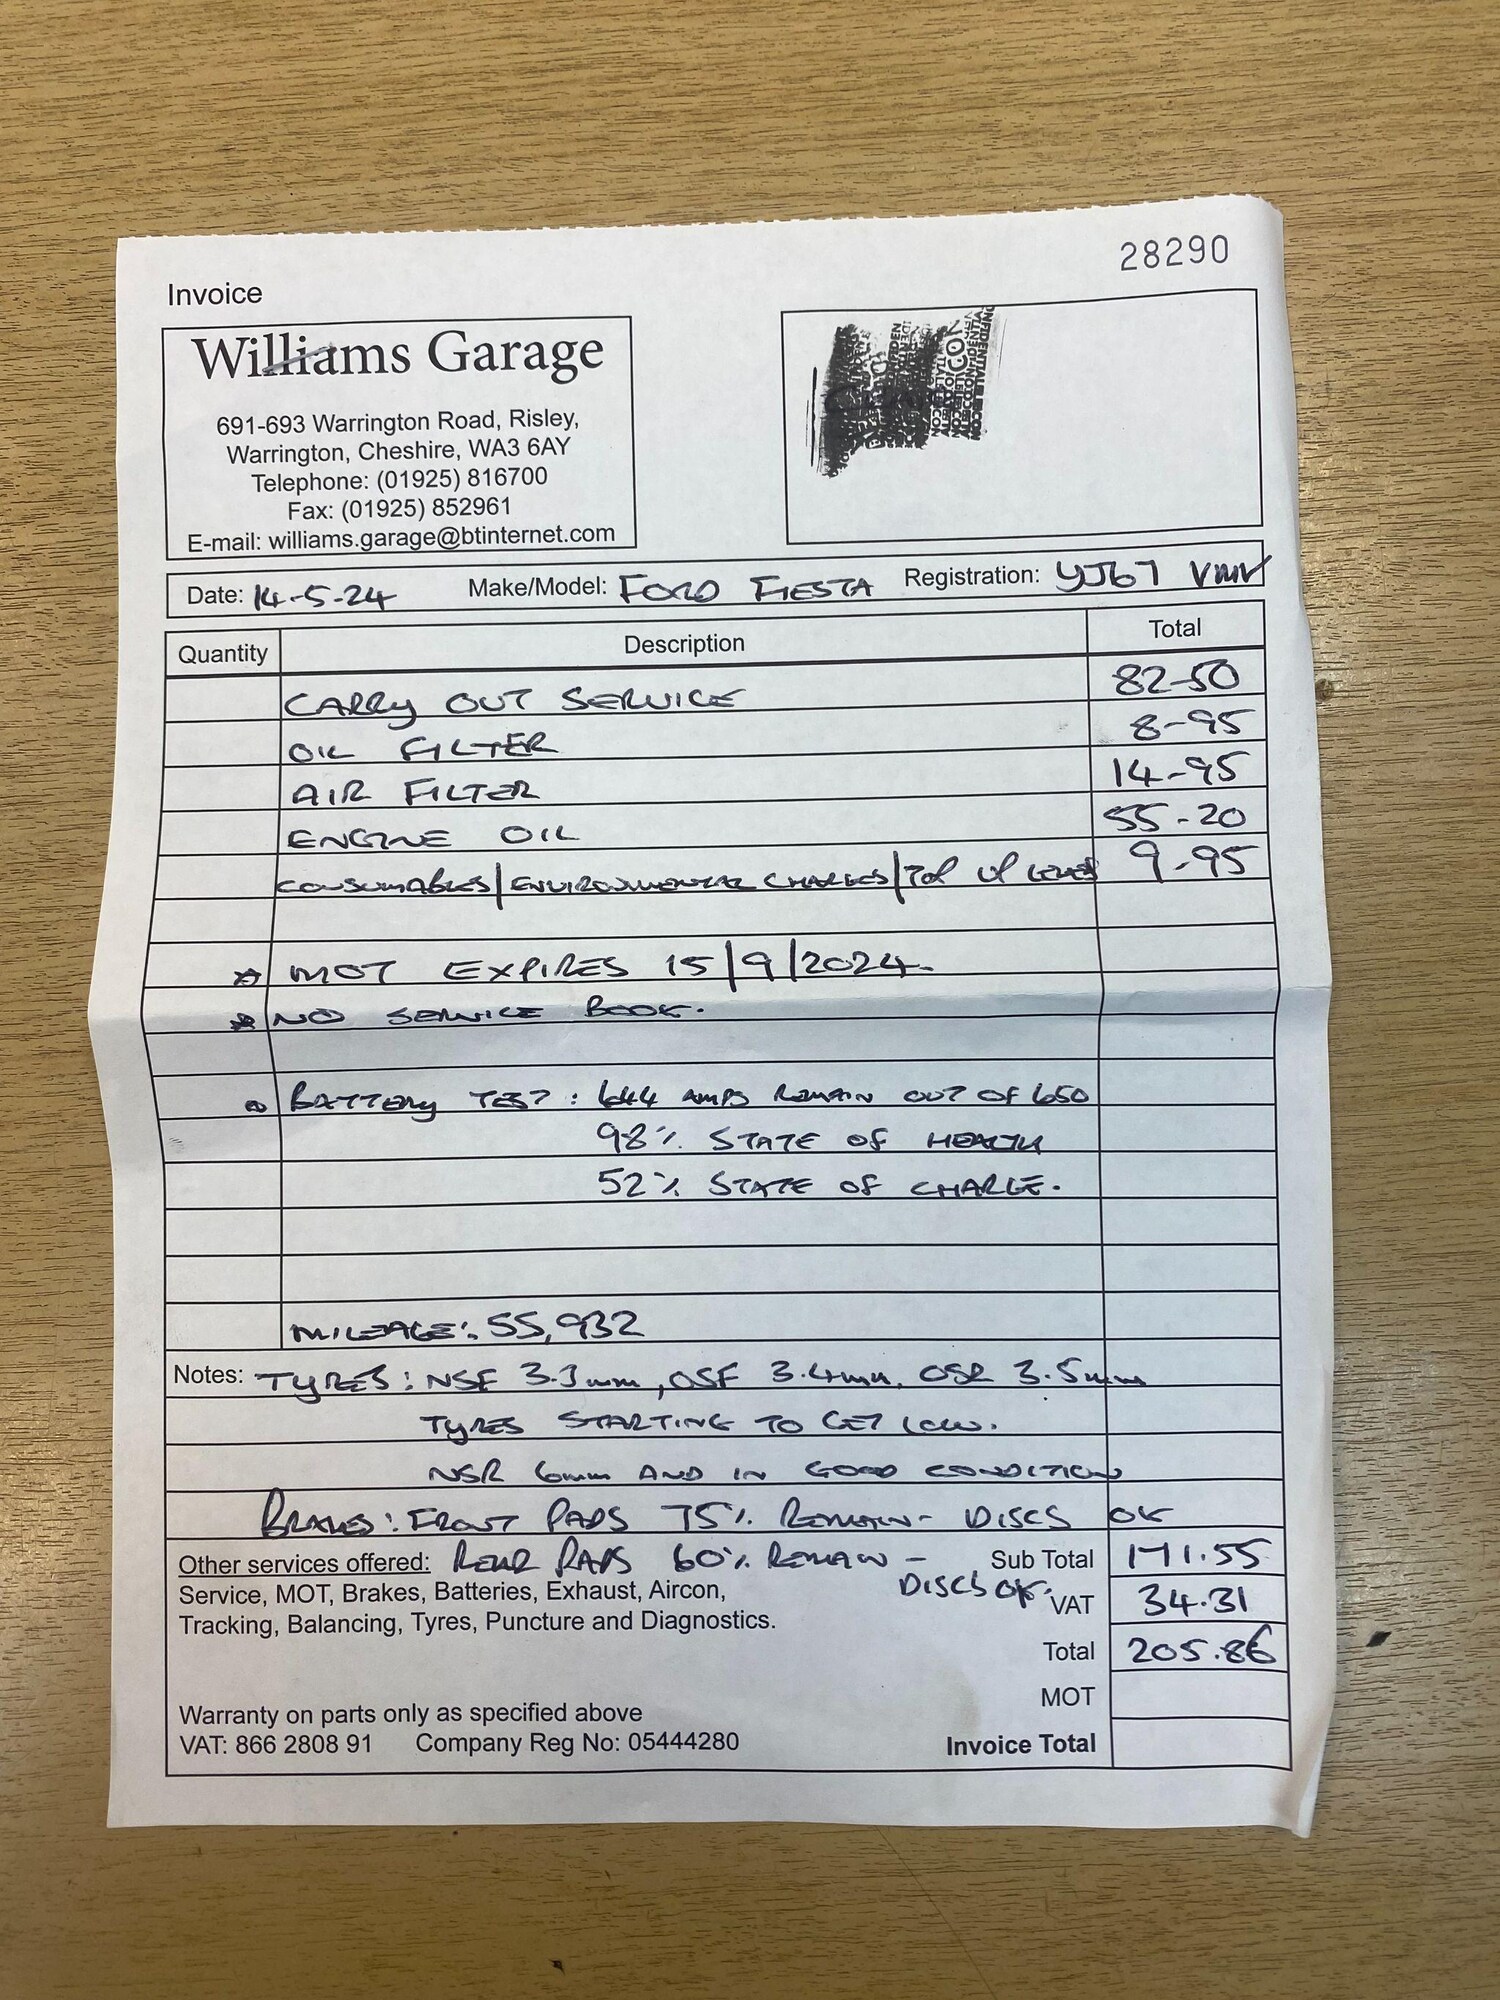 28290
Invoice
Williams Garage
691-693 Warrington Road, Risley,
Warrington, Cheshire, WA3 6AY
Telephone: (01925) 816700
Fax: (01925) 852961
E-mail: williams.garage@btinternet.com
Date: 14-5-24 Make/Model: FORD FIESTA Registration: YJ67 VMV
Quantity Description Total
CARRY OUT SERVICE 82-50
OIL FILTER 8-95
AIR FILTER 14-95
ENGINE OIL 55-20
CONSUMABLES/ENVIRONMENTAL CHARGES/TOP UP LEVELS 9-95
* MOT EXPIRES 15/9/2024.
* NO SERVICE BOOK.
BATTERY TEST: 644 AMPS REMAIN OUT OF 650
98% STATE OF HEALTH
52% STATE OF CHARGE.
MILEAGE: 55,932
Notes: TYRES: NSF 3.3mm, OSF 3.4mm, OSR 3.5mm
TYRES STARTING TO GET LOW.
NSR 6mm AND IN GOOD CONDITION
BRAKES: FRONT PADS 75% REMAIN - DISCS OK
Other services offered: REAR PADS 60% REMAIN - DISCS OK.
Sub Total 171.55
Service, MOT, Brakes, Batteries, Exhaust, Aircon,
VAT 34.31
Tracking, Balancing, Tyres, Puncture and Diagnostics.
Total 205.86
MOT
Warranty on parts only as specified above
VAT: 866 2808 91 Company Reg No: 05444280 Invoice Total